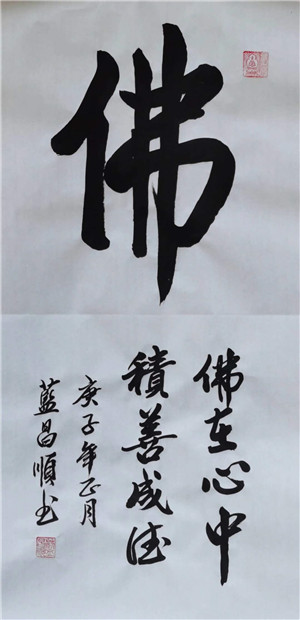 佛
佛在心中
積善成德
庚子年正月
藍昌順书